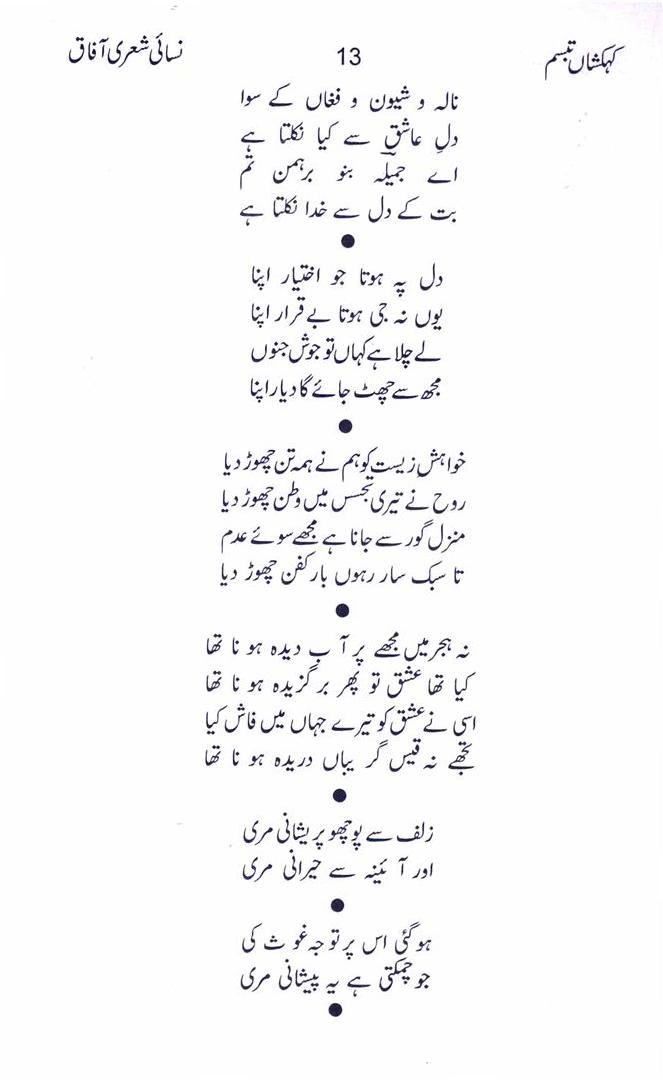 کہکشاں تبسم 13 نسائی شعری آفاق
نالہ و شیون و فغاں کے سوا
دلِ عاشق سے کیا نکلتا ہے
اے جمیلہ بنو برہمن تم
بت کے دل سے خدا نکلتا ہے
●
دل پہ ہوتا جو اختیار اپنا
یوں نہ جی ہوتا بے قرار اپنا
لے چلا ہے کہاں تو جوش جنوں
مجھ سے چھٹ جائے گا دیار اپنا
●
خواہشِ زیست کو ہم نے ہمہ تن چھوڑ دیا
روح نے تیری تجسس میں وطن چھوڑ دیا
منزل گور سے جانا ہے مجھے سوئے عدم
تا سبک سار رہوں بار کفن چھوڑ دیا
●
نہ ہجر میں مجھے پر آب دیدہ ہونا تھا
کیا تھا عشق تو پھر برگزیدہ ہونا تھا
اسی نے عشق کو تیرے جہاں میں فاش کیا
تجھے نہ قیس گریباں دریدہ ہونا تھا
●
زلف سے پوچھو پریشانی مری
اور آئینہ سے حیرانی مری
●
ہوگئی اس پر توجہ غوث کی
جو چمکتی ہے یہ پیشانی مری
●